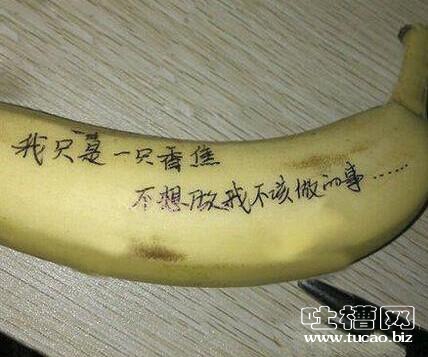 我只是一只香焦
不想做我不该做的事……
吐槽网
www.tucao.biz